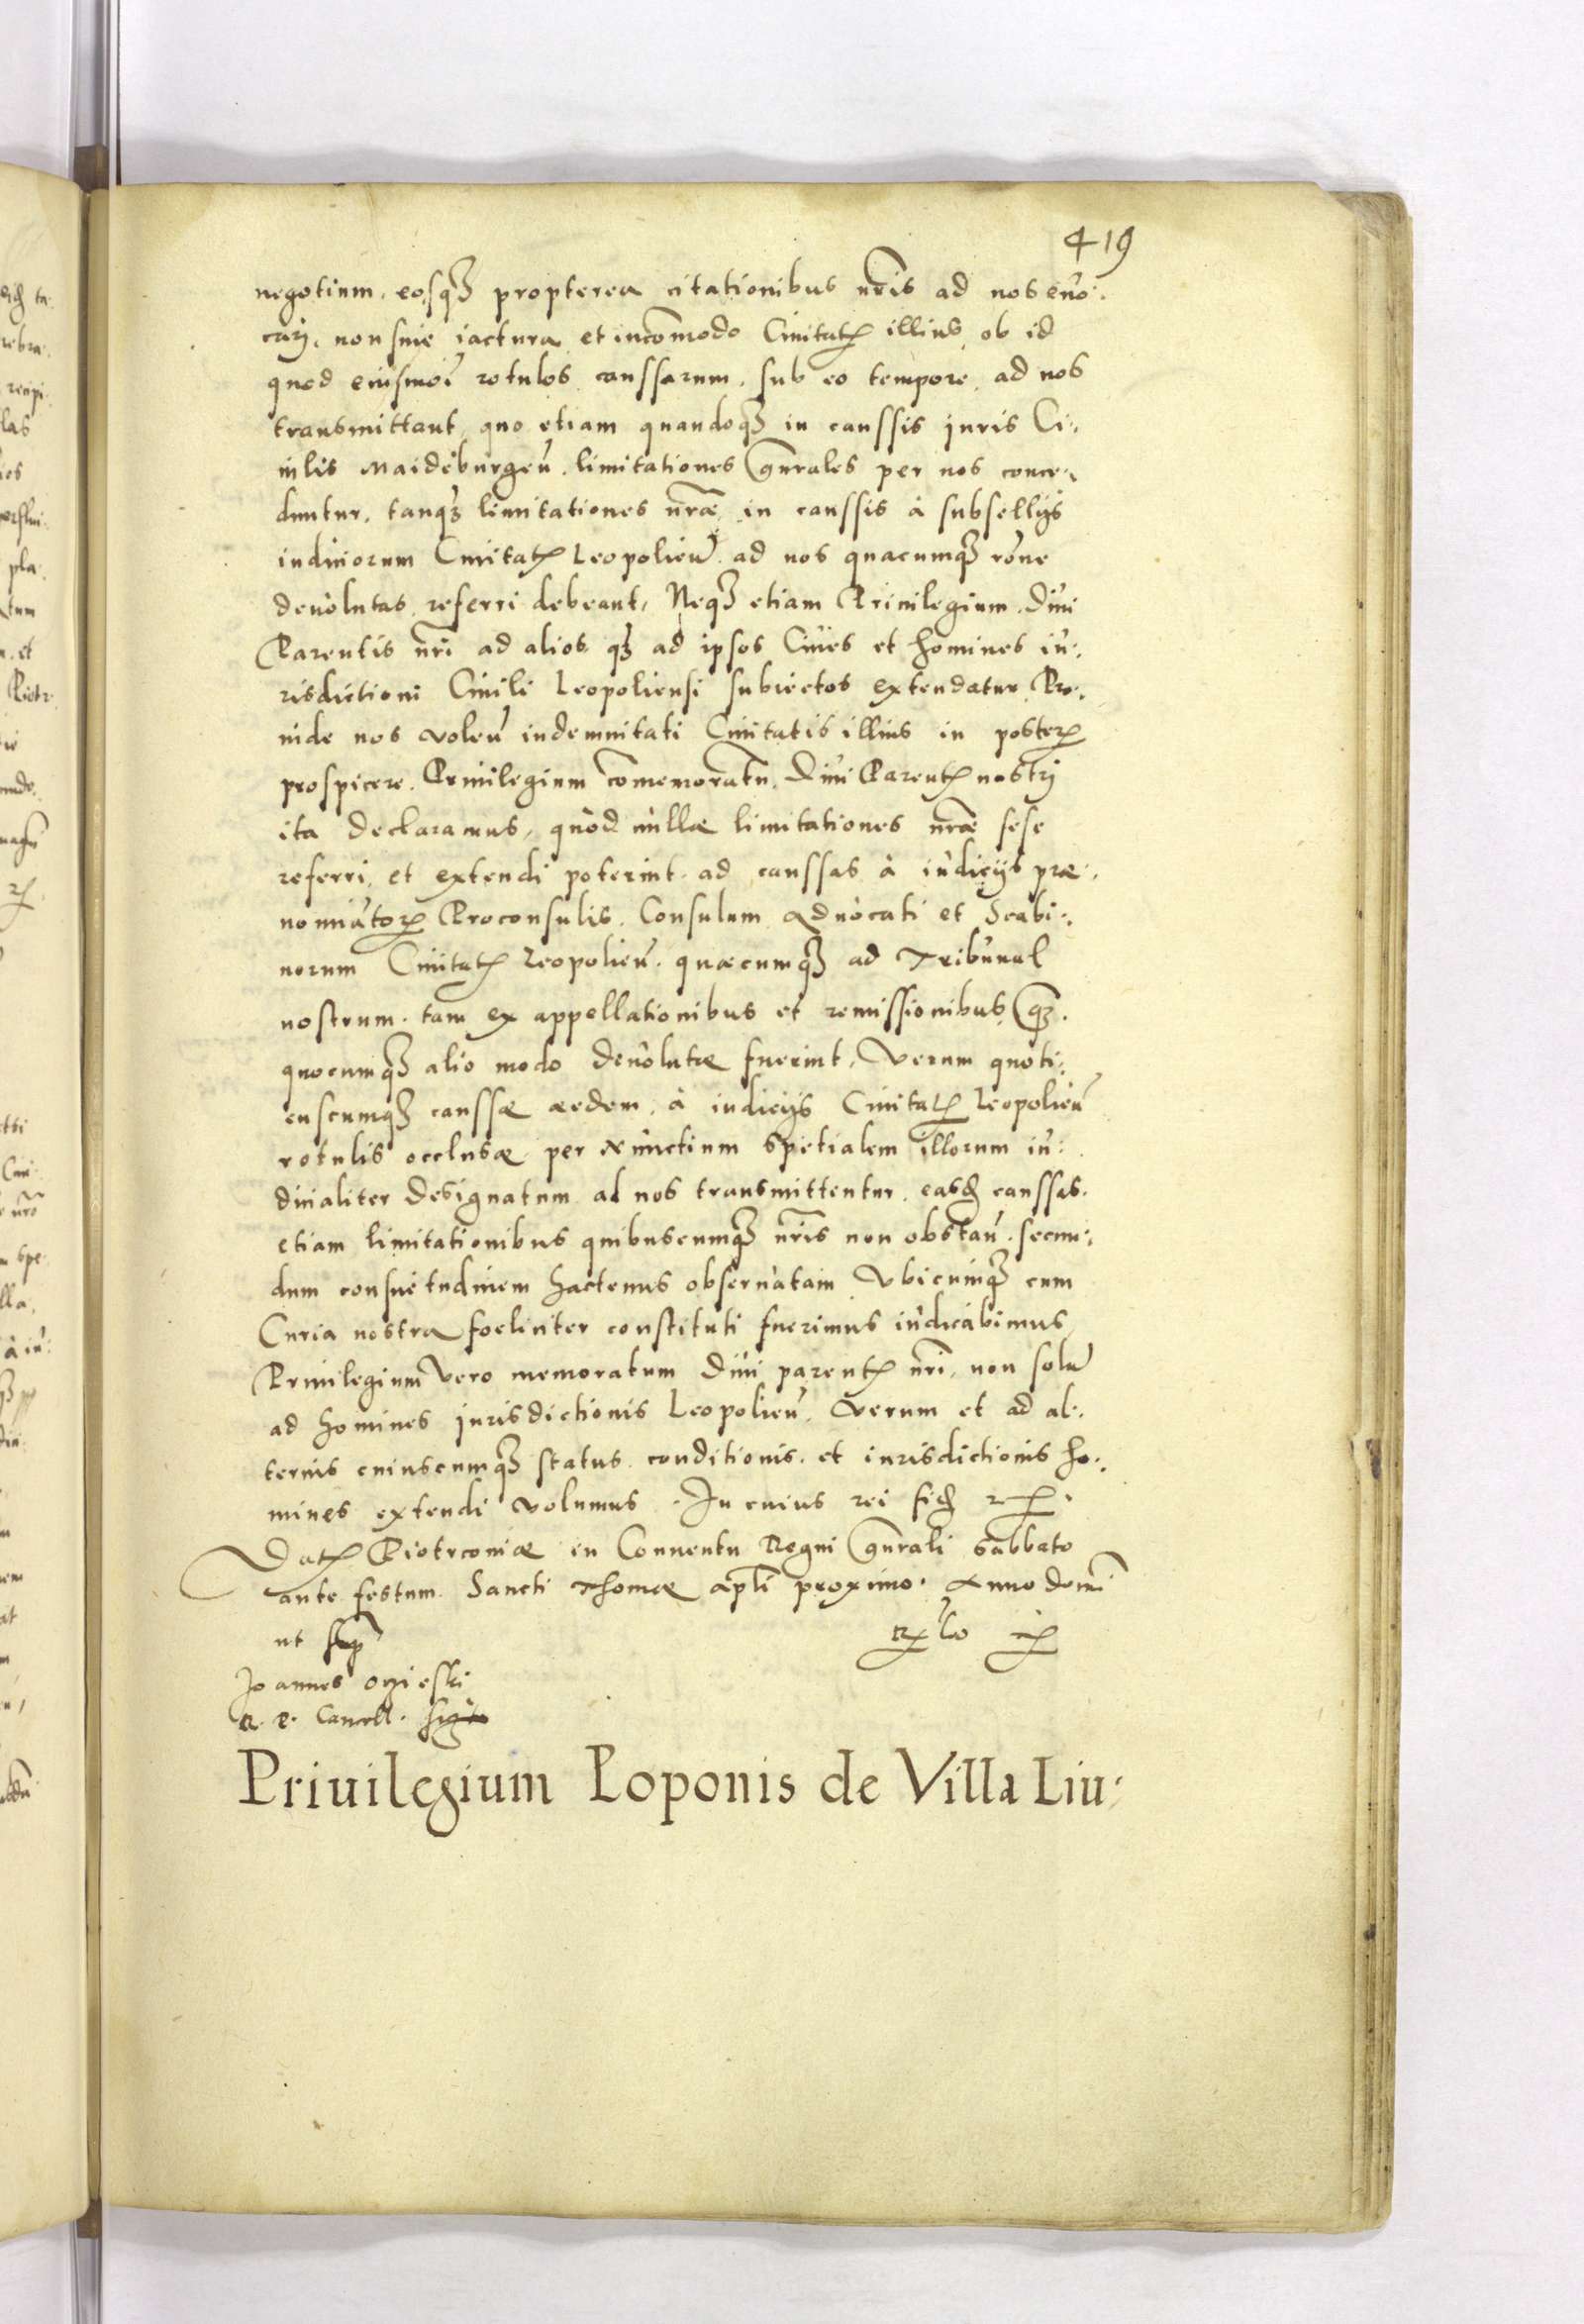 419
negotium, eosq̃ propterea citationibus nr̃is ad nos euo:
carj, non sine iactura et incõmodo Ciuitatꝭ illius, ob id
quod eiusmoi rotulos caussarum, sub eo tempore, ad nos
transmittant, quo etiam quandoqꝫ in caussis juris Ci:
uilis Maideburgeñ. limitationes gñrales per nos conce:
duntur, tanqꝫ limitationes nr̃æ, in caussis à subsellijs
iudiciorum Ciuitatꝭ Leopolieñ. ad nos quacumqꝫ rõne
deuolutas referri debeant, Neqꝫ etiam Priuilegium Diui
Parentis nr̃i ad alios qꝫ ad ipsos Ciues et homines iu:
risdictioni Ciuili Leopoliensi subiectos extendatur. Pro:
uide nos voleñ indemnitati Ciuitatis illius in posterꝝ
prospicere, Priuilegium cõmemoratũ, Diui Parentꝭ nostrj
ita declaramus, quòd nullæ limitationes nr̃æ sese
referri, et extendi poterint ad caussas à iudicijs præ:
nominatorꝝ Proconsulis, Consulum Aduocati et Scabi:
norum Ciuitatꝭ Leopolieñ. quæcumqꝫ ad Tribunal
nostrum, tam ex appellationibus et remissionibus qꝫ.
quocumqꝫ alio modo deuolutæ fuerint, Verum quoti:
enscumqꝫ caussæ aedem, à iudicijs Ciuitatꝭ Leopolieñ
rotulis occlusæ per Nunctium spetialem illorum iu:
dicialiter designatum ad nos transmittentur, easđ caussas
etiam limitationibus quibuscumqꝫ nr̃is non obstañ. secun:
dum consuetudinem hactenus obseruatam Vbicumqꝫ cum
Curia nostra foeliciter constituti fuerimus iudicabimus,
Priuilegium vero memoratum Diui parentꝭ nr̃i, non solũ
ad homines jurisdictionis Leopolieñ, Verum et ad al:
terius cuiuscumqꝫ status conditionis et iurisdictionis ho:
mines extendi volumus. In cuius rei fidꝭ ꝛꝭ.
Datꝭ Piotrcouiæ in Conuentu Regni gñrali Sabbato
ante festum Sancti Thomæ apl̃i proximo. Anno domĩ
ut sup̃
Joannes Oczieski
R. P. Cancell.
Priuilegium Poponis de Villa Liu: